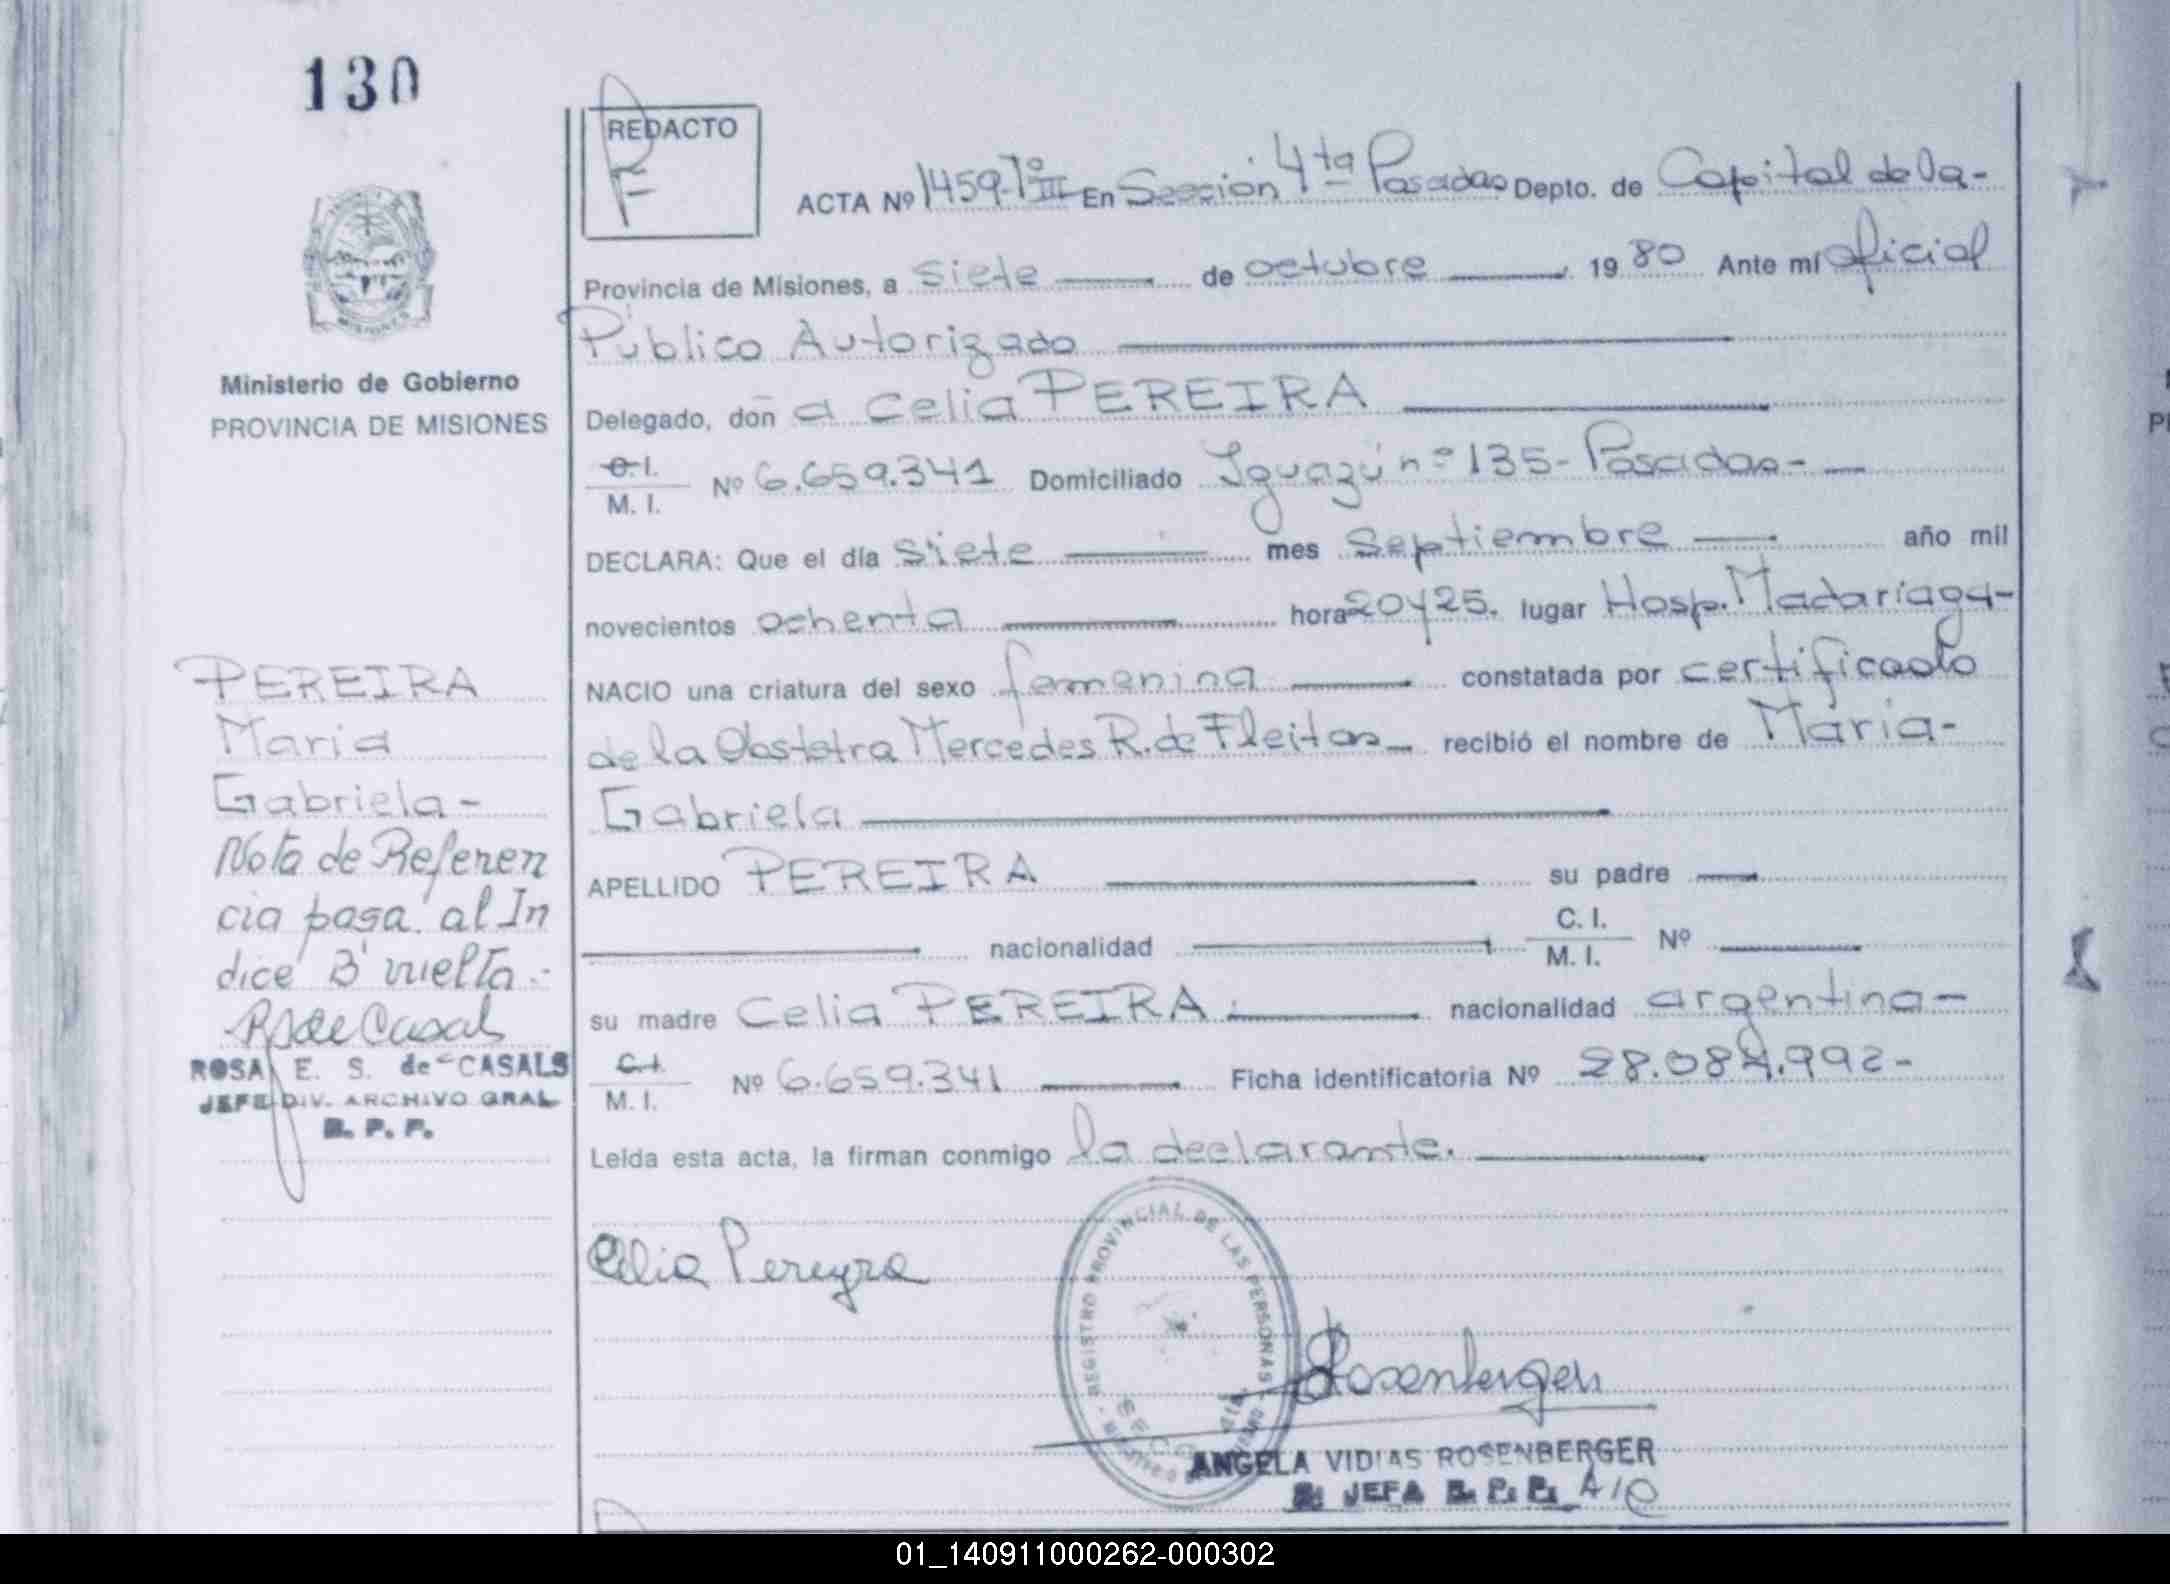 130
REDACTO
F
ACTA Nº 1459-Tº III En Sección 4ta Posadas Depto. de Capital de la-
Provincia de Misiones, a siete de octubre 19 80 Ante mí oficial
Público Autorizado
Ministerio de Gobierno
PROVINCIA DE MISIONES
Delegado, don a Celia PEREIRA
C.I.
M. I. Nº 6.659.341 Domiciliado Iguazú nº 135- Posadas-
DECLARA: Que el día siete mes septiembre año mil
novecientos ochenta hora 20y25. lugar Hosp. Madariaga-
NACIO una criatura del sexo femenina constatada por certificado
de la Obstetra Mercedes R. de Fleitas recibió el nombre de Maria-
Gabriela
APELLIDO PEREIRA su padre
nacionalidad C. I.
M. I. Nº
su madre Celia PEREIRA. nacionalidad argentina-
C.I.
M. I. Nº 6.659.341 Ficha identificatoria Nº 28.084.992-
Leída esta acta, la firman conmigo la declarante.
PEREIRA
Maria
Gabriela-
Nota de Referen
cia pasa al In
dice B vuelta.-
R S de Casals
ROSA E. S. de CASALS
JEFE DIV. ARCHIVO GRAL
R. P. P.
Celia Pereyra
REGISTRO PROVINCIAL DE LAS PERSONAS
Rosenberger
ANGELA VIDIAS ROSENBERGER
JEFA R. P. P. A/C
01_140911000262-000302